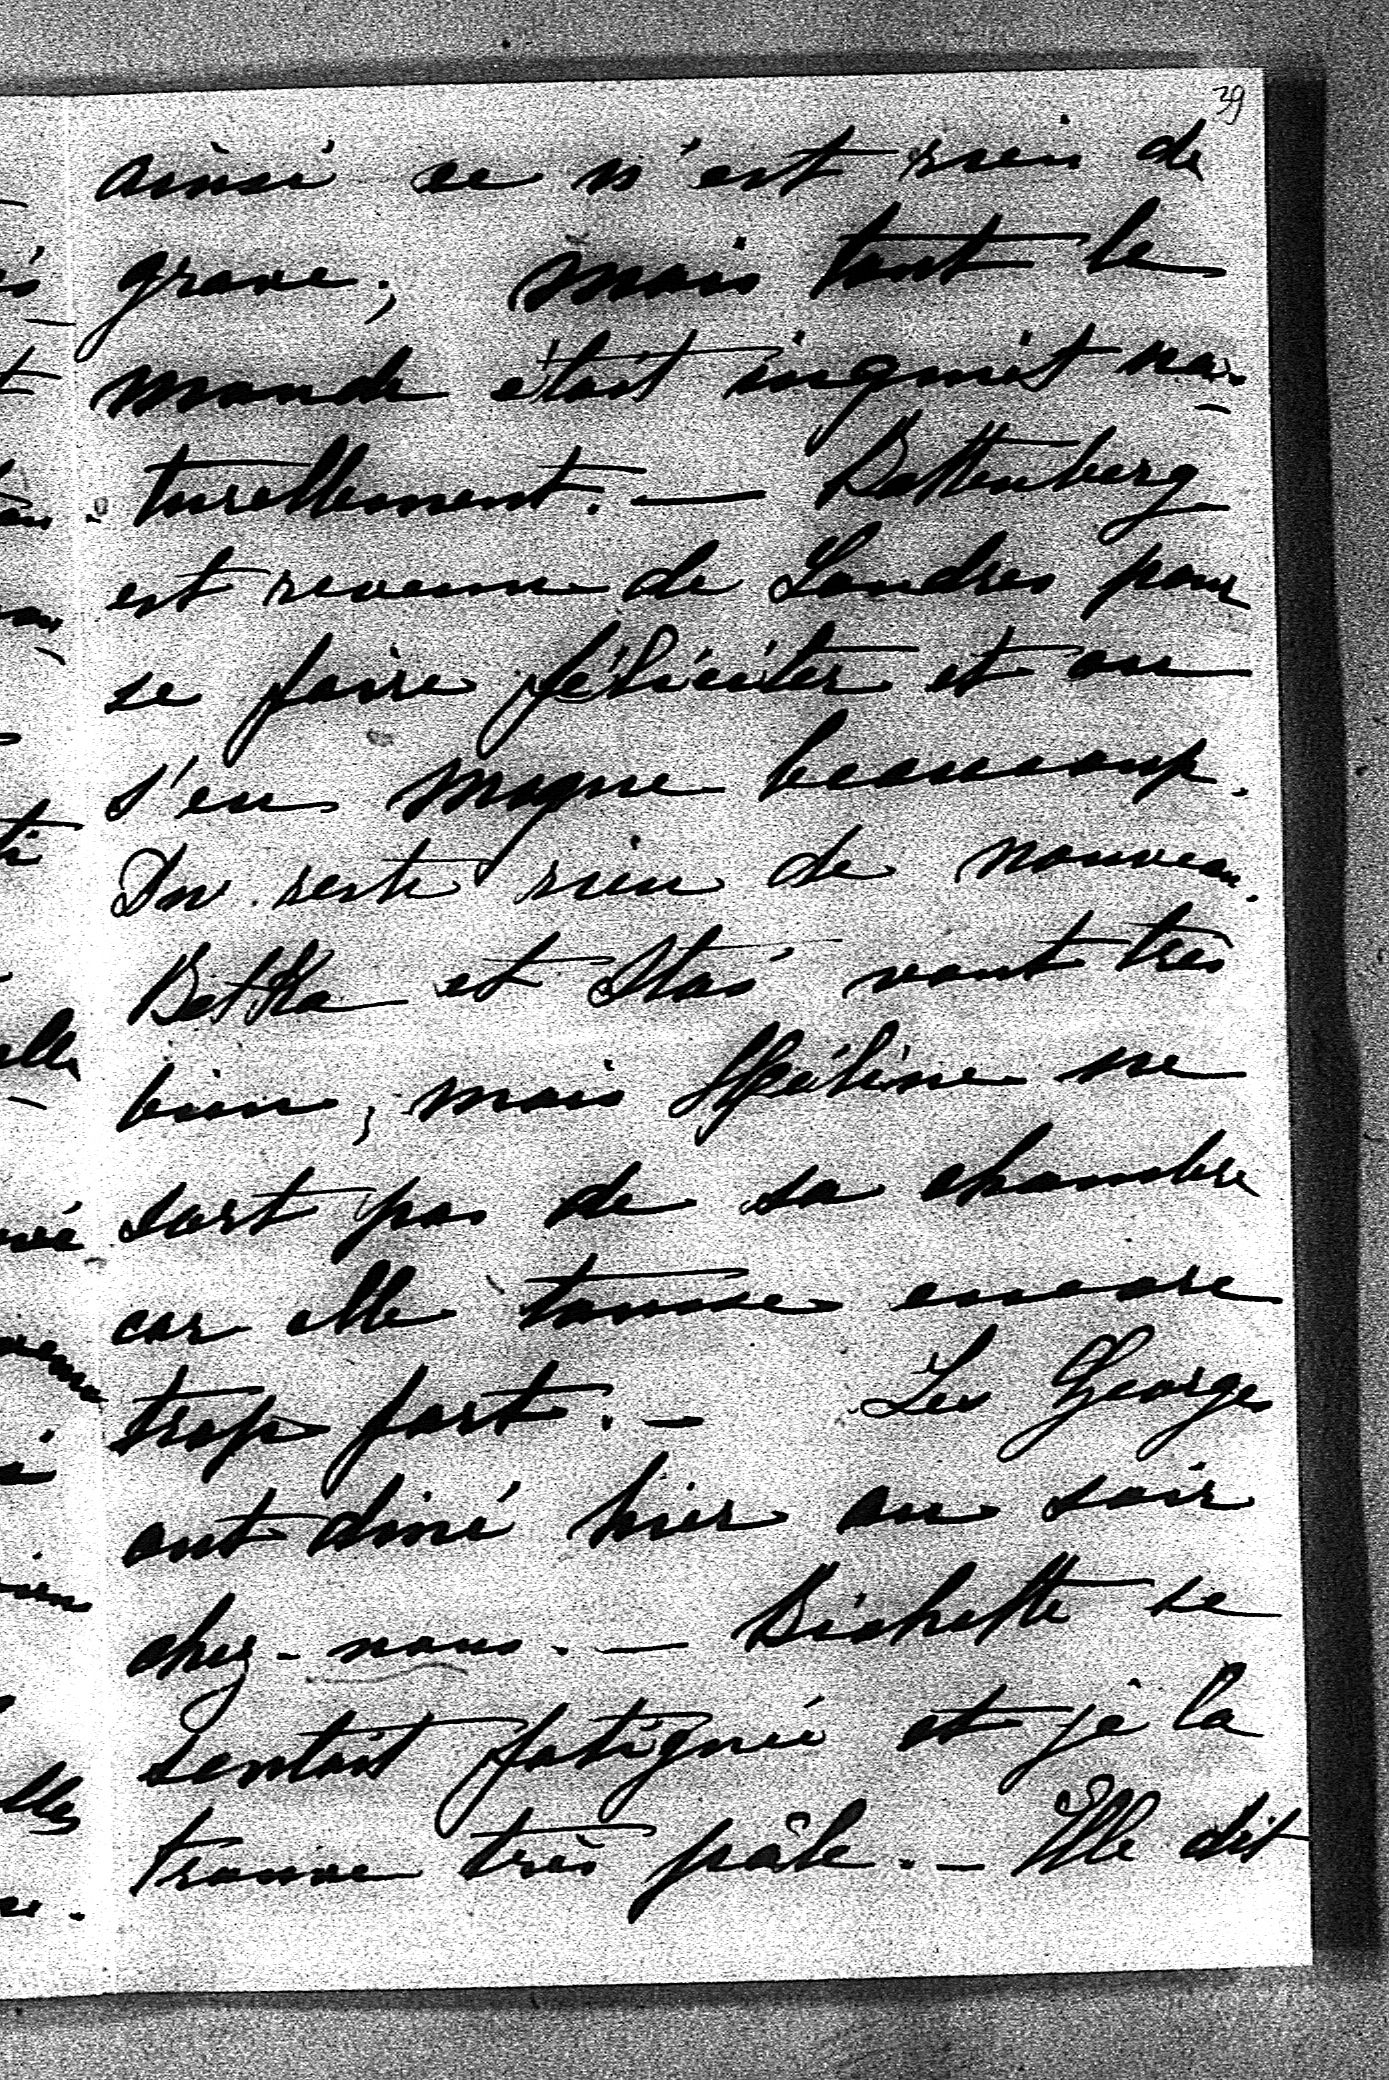 39
ainsi ce n'est rien de
grave; mais tout le
monde était inquiet na-
turellement. — Battenberg
est revenu de Londres pour
se faire féliciter et on
s'en moque beaucoup.
Du reste rien de nouveau.
Betka et Stas vont très
bien, mais Hféline ne
sort pas de sa chambre
car elle tousse encore
trop fort. — Les Georges
ont diné hier au soir
chez-nous. — Bichette se
sentait fatiguée et je la
trouve très pâle. — Elle dit